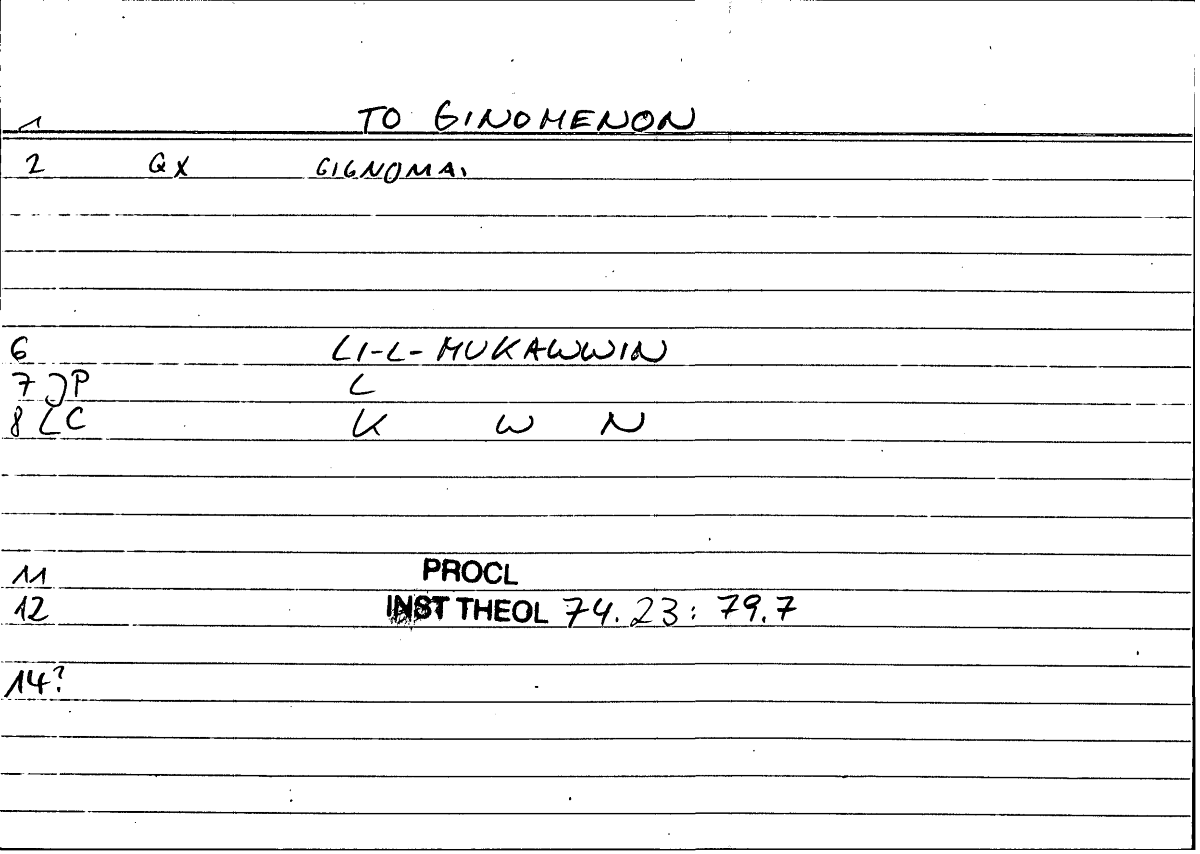 1 TO GINOMENON
2 QX GIGNOMAI
6 LI-L-MUKAWWIN
7 JP L
8 LC K W N
11 PROCL
12 INST THEOL 74.23: 79.7
14?